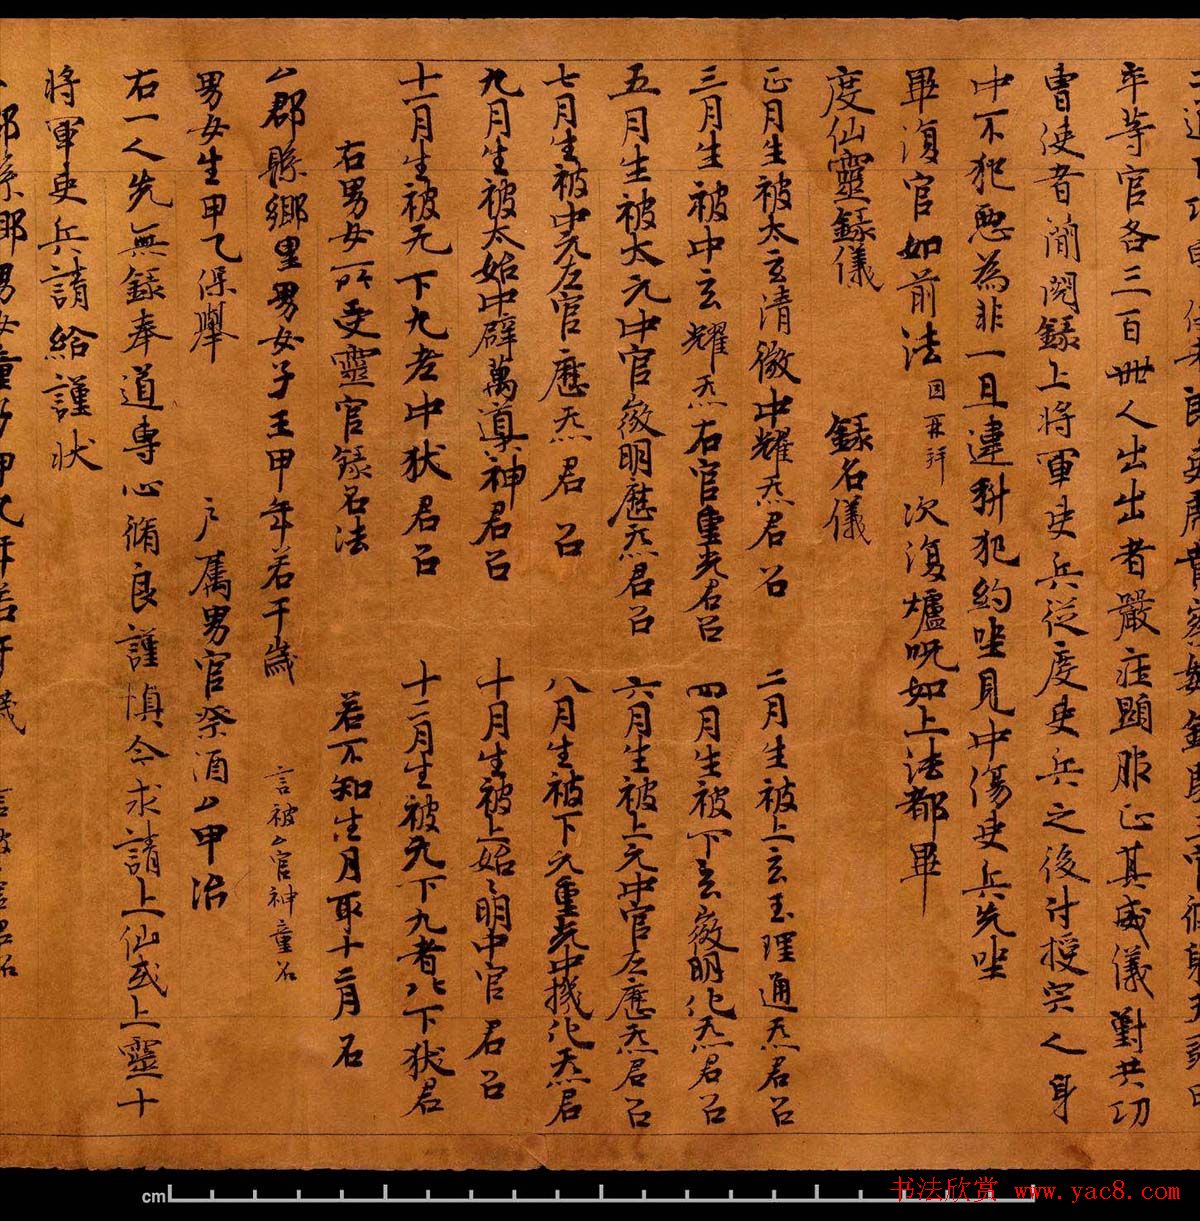 率等官各三百卌人出出者嚴症顯服正其威儀對共功
曹使者蕳閱錄上將軍吏兵從度吏兵之後付授完人身
中不犯惡為非一旦違科犯約坐見中傷吏兵先坐
畢復官如前法 因再拜 次復爐呪如上法都畢
度仙靈錄儀 錄名儀
正月生被太玄清徵中耀炁君召 二月生被上玄玉理通炁君召
三月生被中玄耀炁右官重光君召 四月生被下玄徵明化炁君召
五月生被太元中官徵明應炁君召 六月生被上元中官左應炁君召
七月生被中元左官應炁君召 八月生被下元重光中機化炁君
九月生被太始中辟萬導神君召 十月生被上始明中官君召
十一月生被无下九老中狀君召 十二月生被无下九者下狀君
右男女所受靈官錄名法 若不知生月取十二月召
厶郡縣鄉里男女子王甲年若干歲 言被厶官神童召
男女生甲乙保舉 户屬男官祭酒厶甲治
右一人先無錄奉道專心脩良謹慎今求請上仙或上靈十
將軍吏兵請給謹狀
郡縣鄉男女童
cm
书法欣赏 www.yac8.com